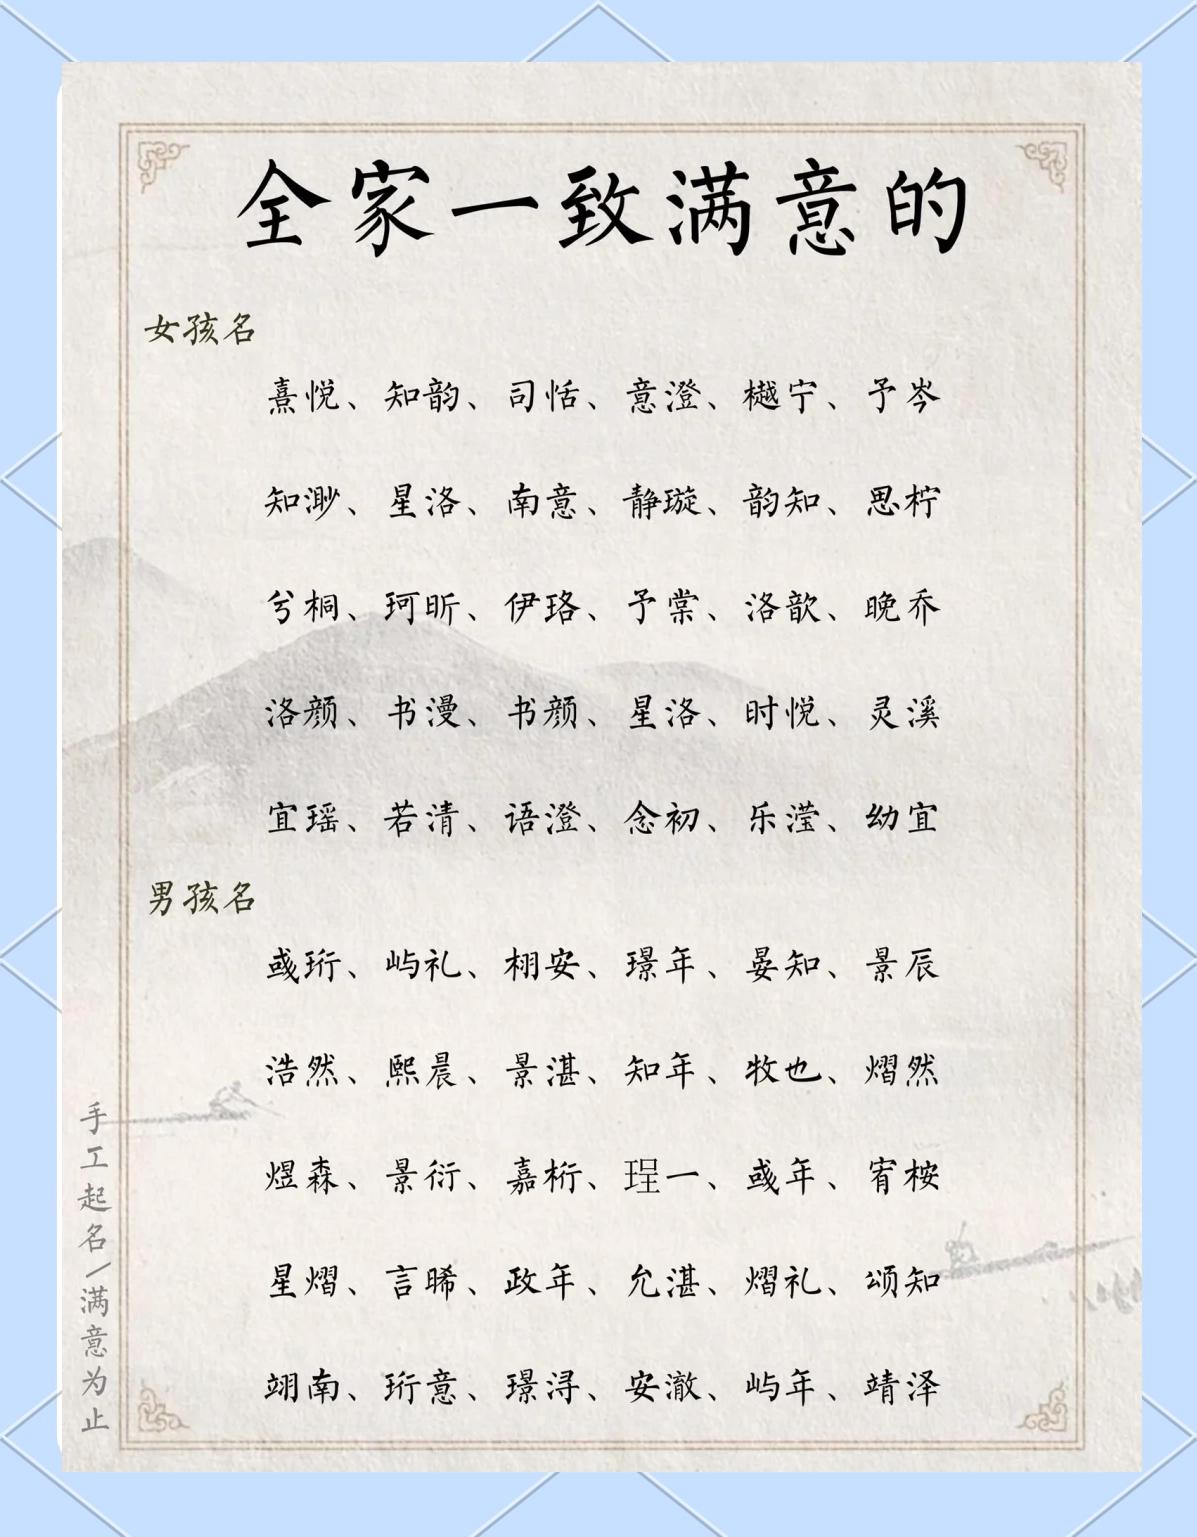 全家一致满意的
女孩名
熹悦、知韵、司恬、意澄、樾宁、予岑
知渺、星洛、南意、静璇、韵知、思柠
兮桐、珂昕、伊珞、予棠、洛歆、晚乔
洛颜、书漫、书颜、星洛、时悦、灵溪
宜瑶、若清、语澄、念初、乐滢、幼宜
男孩名
彧珩、屿礼、栩安、璟年、晏知、景辰
浩然、熙晨、景湛、知年、牧也、熠然
煜森、景衍、嘉桁、珵一、彧年、宥桉
星熠、言晞、政年、允湛、熠礼、颂知
翊南、珩意、璟浔、安澈、屿年、靖泽
手工起名/满意为止